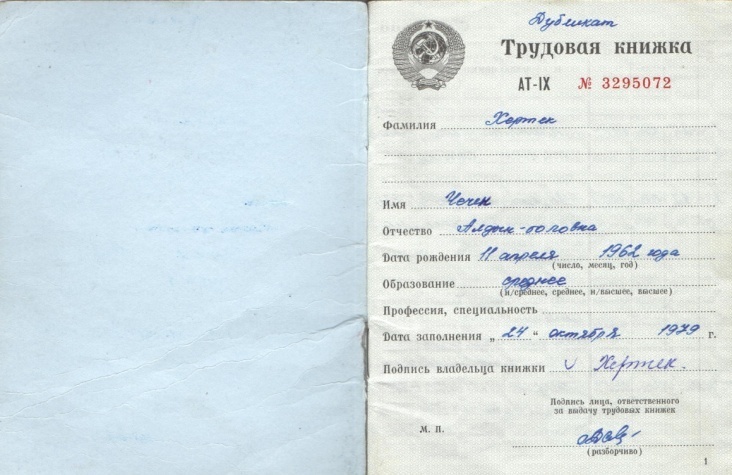 Дубликат
Трудовая книжка
АТ-IX № 3295072
Фамилия Хертек
Имя Чечек
Отчество Алдын-ооловна
Дата рождения 11 апреля 1962 года
(число, месяц, год)
Образование среднее
(н/среднее, среднее, н/высшее, высшее)
Профессия, специальность
Дата заполнения „ 24 “ октября 1979 г.
Подпись владельца книжки Хертек.
Подпись лица, ответственного
за выдачу трудовых книжек
М. П.
(разборчиво)
1